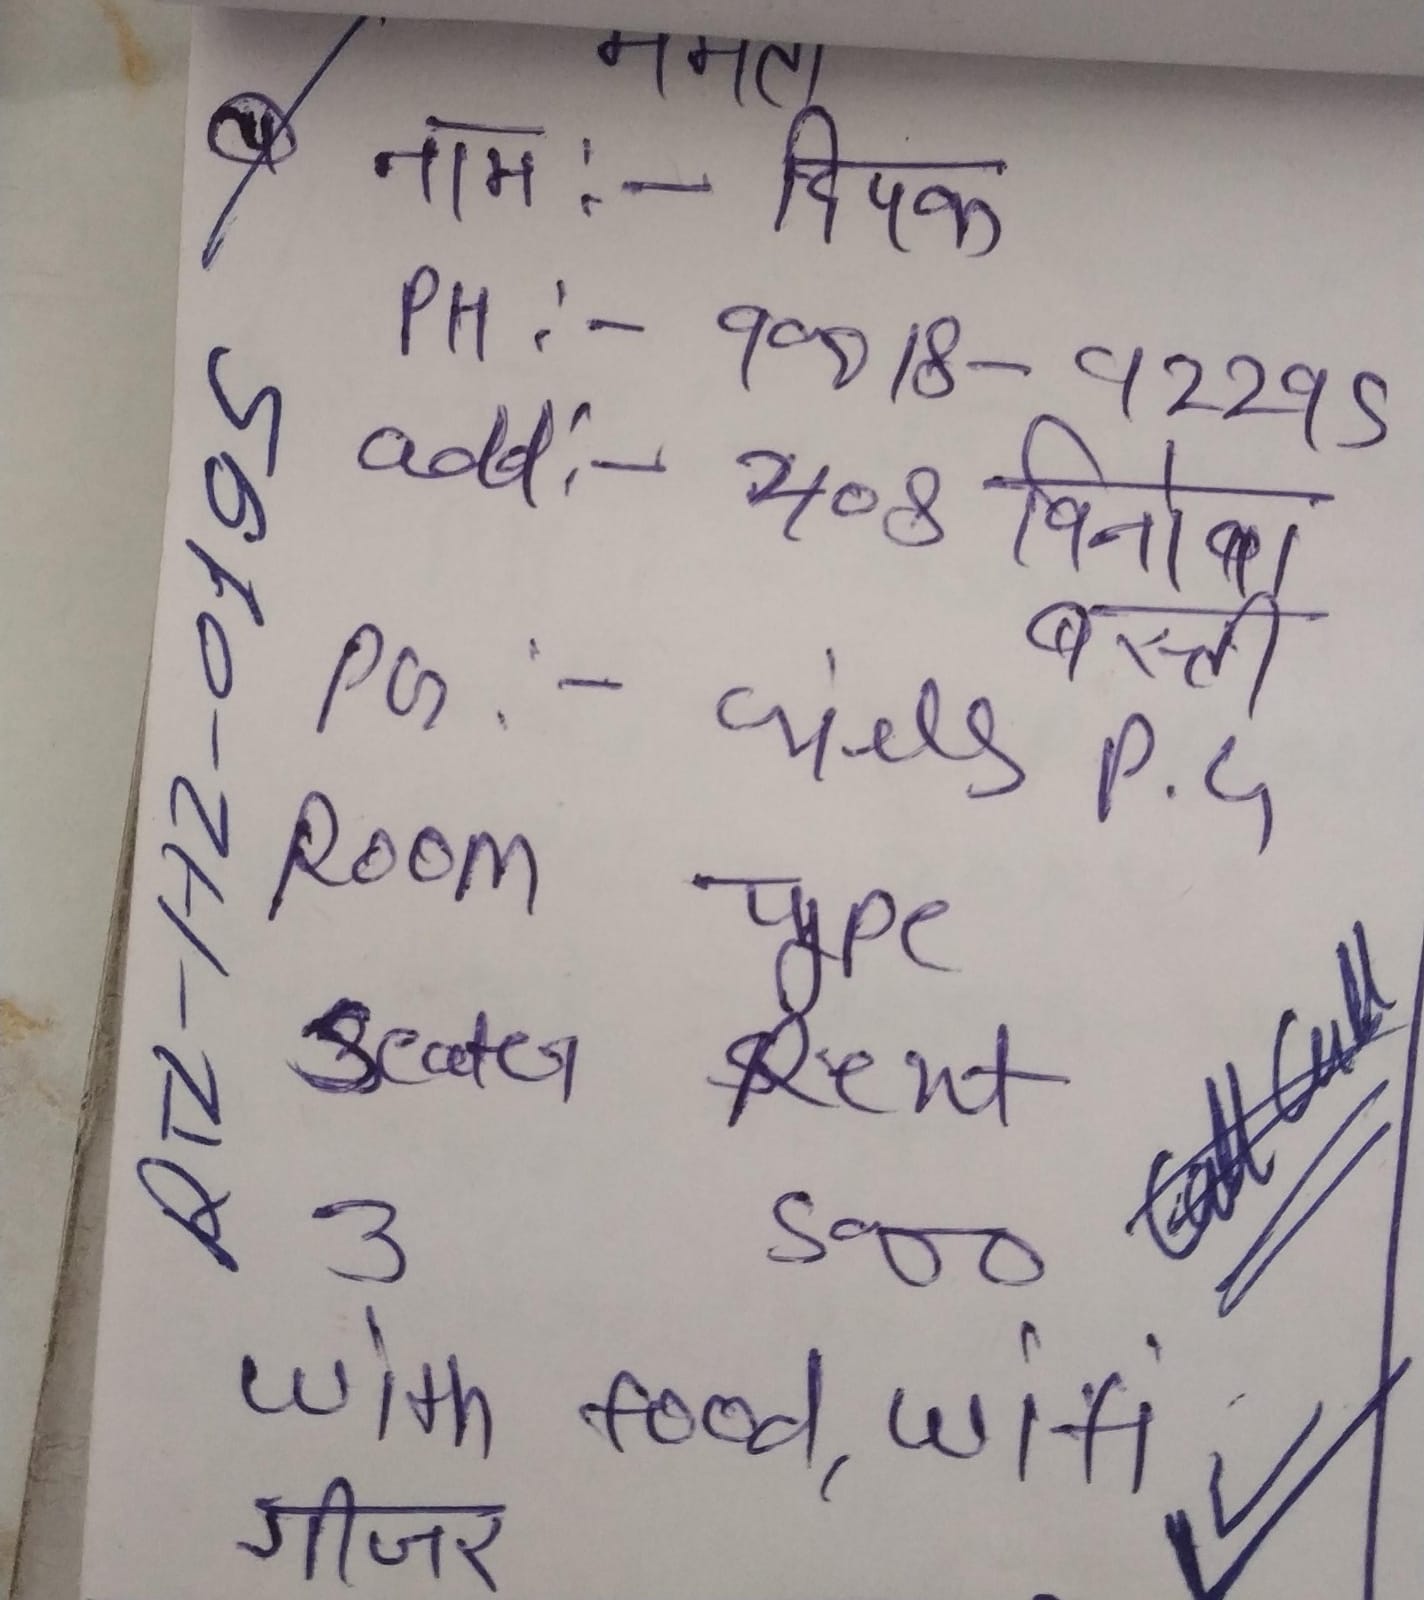 ममता
नाम :- दिपक
PH :- 99818-92295
add :- 408 विनोबा
बस्ती
PG :- Girls P.G
Room Type
3eater Rent
3 5900
with food, wifi
गीजर
RTZ-HZ-0195